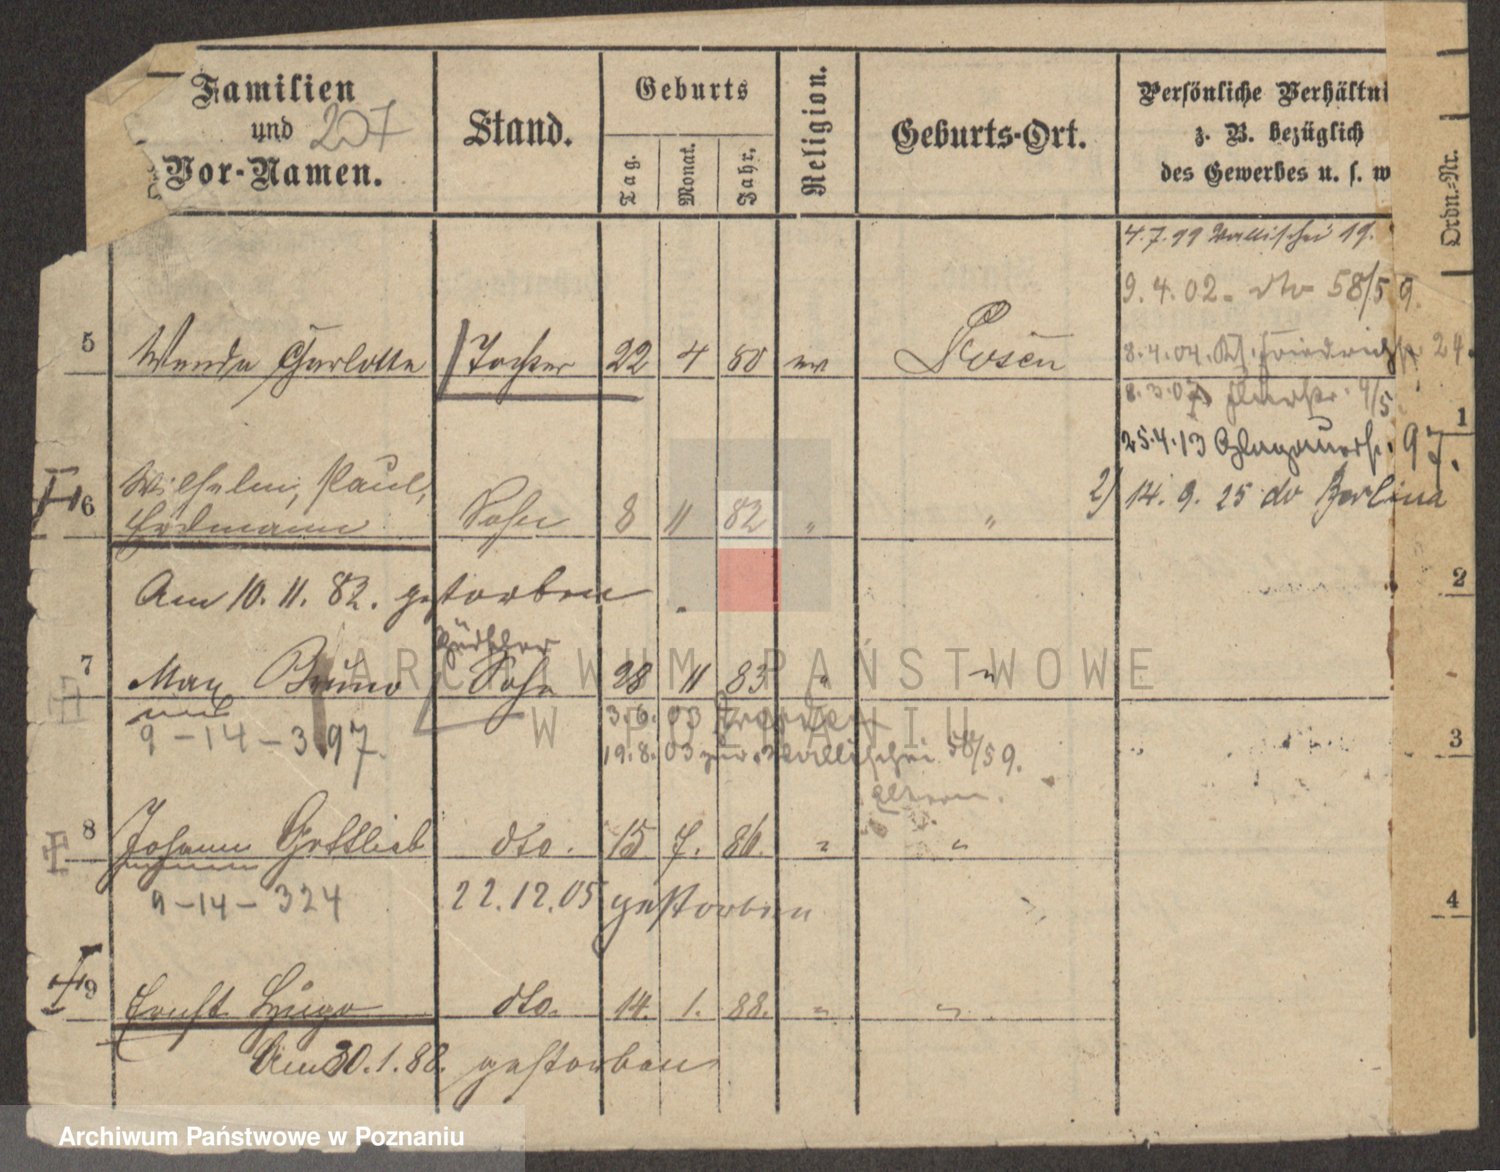 Familien
und 207
Vor-Namen.
Stand.
Geburts
Tag.
Monat.
Jahr.
Religion.
Geburts-Ort.
Persönliche Verhältni
z. B. bezüglich
des Gewerbes u. s. w
Ordn.-Nr.
4.7.99 Wallischei 19.
9.4.02. dto 58/59.
5 Wanda Charlotte Tochter 22 4 80 ev Posen
8.4.04. Friedrichstr. 24.
8.3.07 9/5
1
25.4.13 Glogauerstr. 97.
2) 14. 9. 25 do Berlin
6 Wilhelm, Paul,
Erdmann Sohn 8 11 82 " "
Am 10. 11. 82. gestorben
2
7 Max Bruno Sohn 28 11 83 " "
9-14-397.
3.6.03
19.8.03 zur. Wallischei 58/59.
Eltern.
3
8 Johann Gottlieb dto. 15 7. 86. " "
9-14-324
22.12.05 gestorben
4
9 Ernst Hugo dto. 14. 1. 88. " "
Am 30.1.88. gestorben
ARCHIWUM PAŃSTWOWE
W POZNANIU
Archiwum Państwowe w Poznaniu